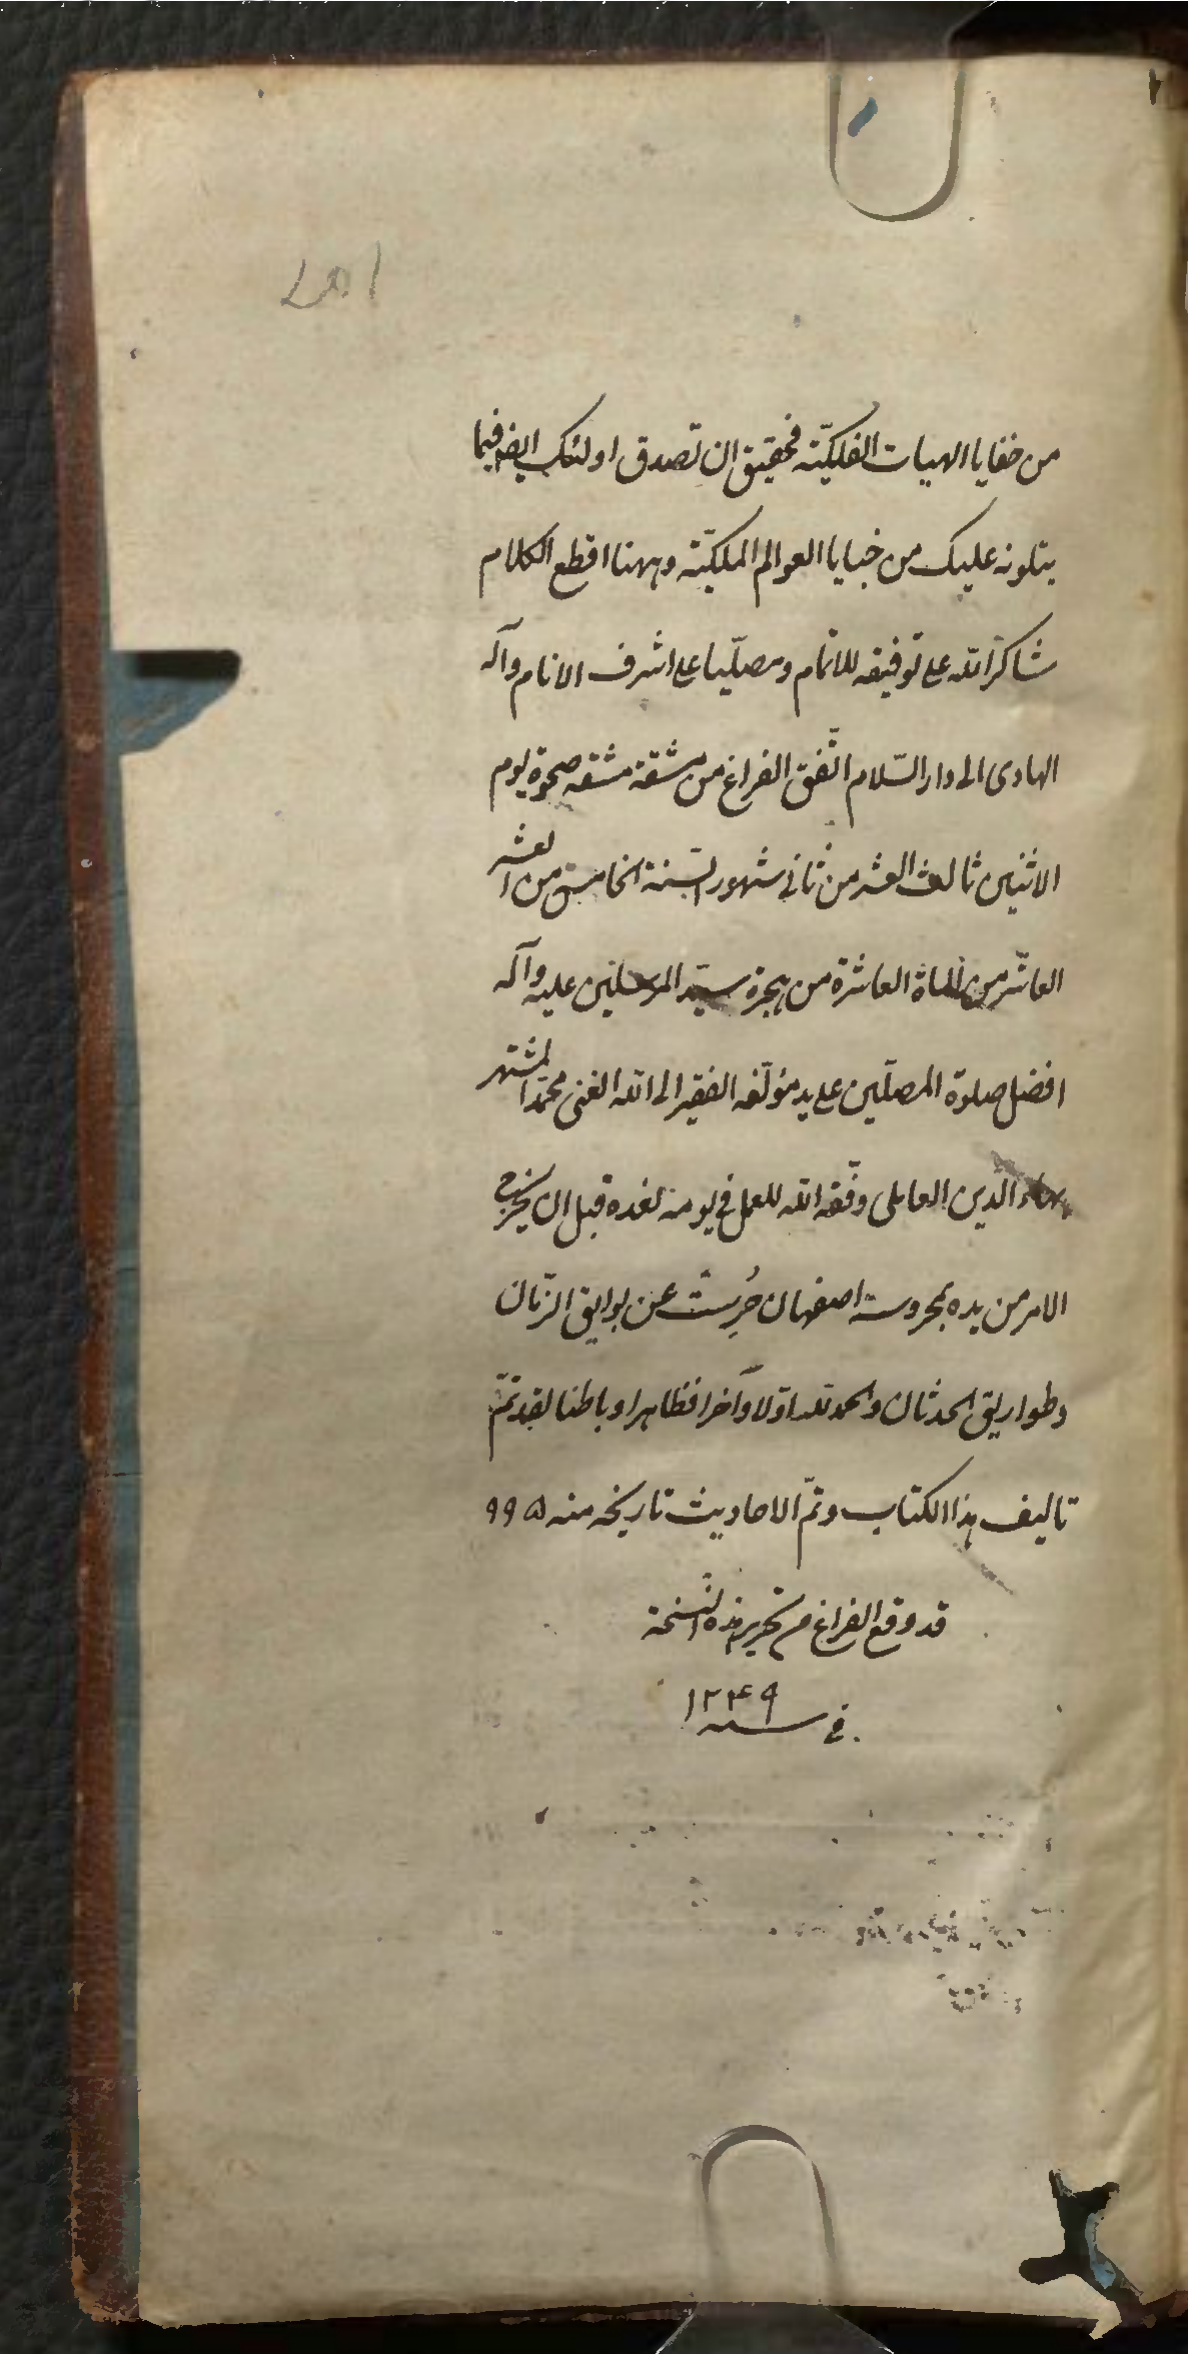 من خفايا الهيات الفلكيّة فحقيق ان تصدق اولئك ايضا فيما
يتلونه عليك من خبايا العوالم الملكيّة وههنا اقطع الكلام
شاكرا لله على توفيقه للاتمام ومصلّيا على اشرف الانام وآله
الهادى الى دار السّلام اتّفق الفراغ من مشقة مشقه ضحوة يوم
الاثنين ثالث العشر من ثانى شهور السّنة الخامسة من العشر
العاشر من المأة العاشرة من هجرة سيّد المرسلين عليه وآله
افضل صلوة المصلّين على يد مؤلّفه الفقير الى الله الغنى محمّد المشتهر
بهاء الدّين العاملى وفّقه الله للعمل فى يومه لغده قبل ان يخرج
الامر من يده بمحروسة اصفهان حُرِسَت عن بوايق الزّمان
وطواريق الحدثان والحمد لله اوّلا وآخرا وظاهرا وباطنا لقد تمّ
تاليف هذا الكتاب وتمّ الاحاديث تاريخه منه ٩٩٥
قد وقع الفراغ من تحرير هذه النّسخة
فى سنه ١٢٤٩